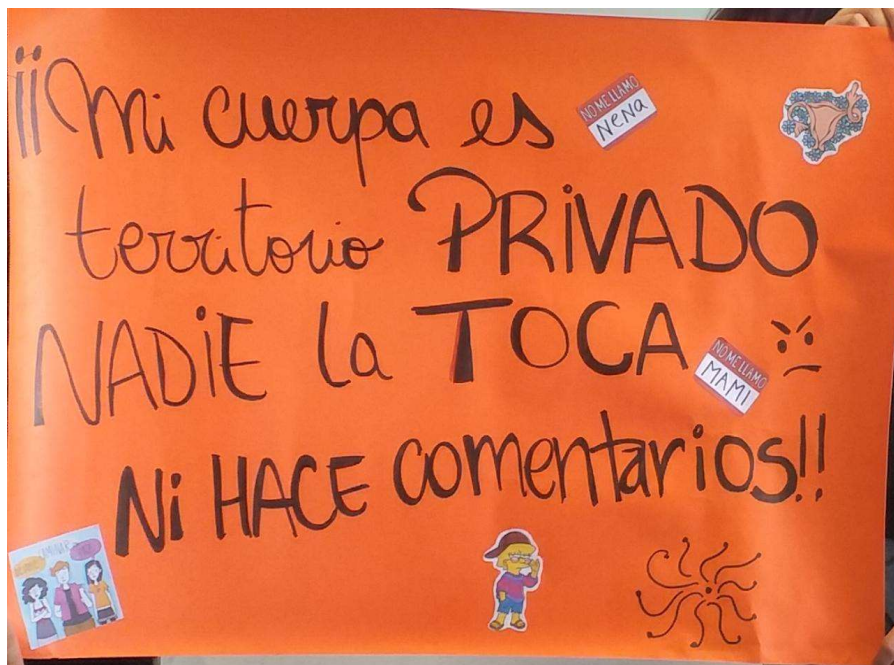 ¡¡Mi cuerpa es
NO ME LLAMO
Nena
territorio PRIVADO
NADIE la TOCA
NO ME LLAMO
MAMI
Ni HACE comentarios!!